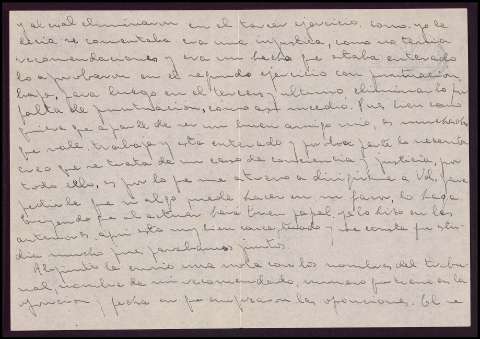 y al cual eliminaron en el tercer ejercicio, como ya le
decía se comentaba era una injusticia, como no tenía
recomendaciones y era un hecho que estaba enterado
lo aprobaron en el segundo ejercicio con puntuación
baja, para luego en el tercero y último eliminarlo por
falta de puntuación, como así sucedió. Pues bien como
quiera que aparte de ser un buen amigo mío, es muchacho
que vale, trabaja y está enterado y por otra parte lo necesita
creo que se trata de un caso de conciencia y justicia, por
todo ello, es por lo que me atrevo a dirigirme a Vd. para
pedirle que si algo puede hacer en su favor, lo haga
creyendo que él actuar hará buen papel ya lo hizo en las
anteriores, aquí está muy bien conceptuado y me consta que estu-
dia mucho pues paseabamos juntos.
Al punto le envío una nota con los nombres del tribu-
nal, nombre de mi recomendado, número que hace en la
oposición y fecha en que empiezan las oposiciones. El se